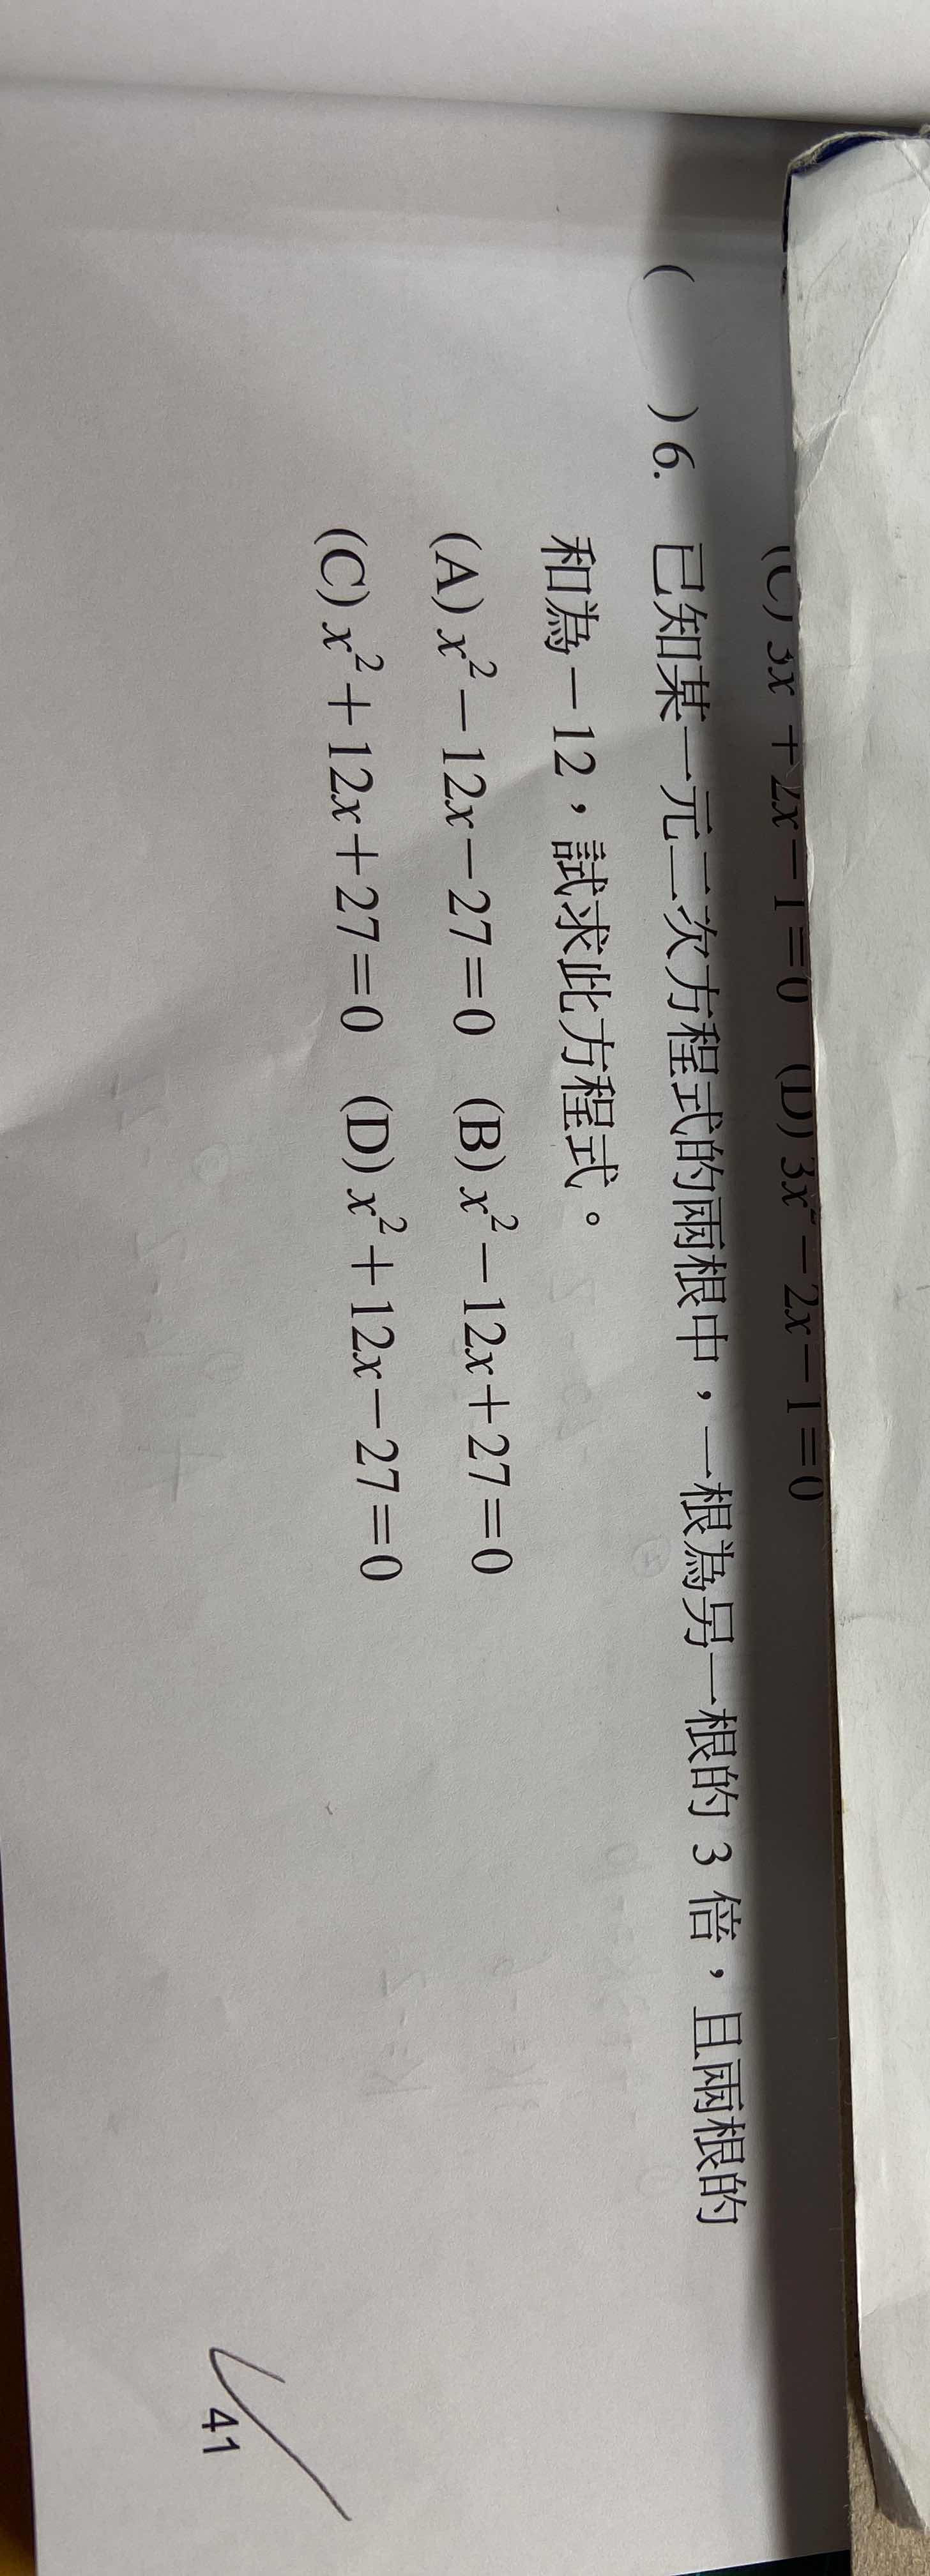 (C) 3x + 2x－1＝0 (D) 3x²－2x－1＝0
(　) 6. 已知某一元二次方程式的兩根中，一根為另一根的 3 倍，且兩根的
和為－12，試求此方程式。
(A) x²－12x－27＝0 (B) x²－12x＋27＝0
(C) x²＋12x＋27＝0 (D) x²＋12x－27＝0
41